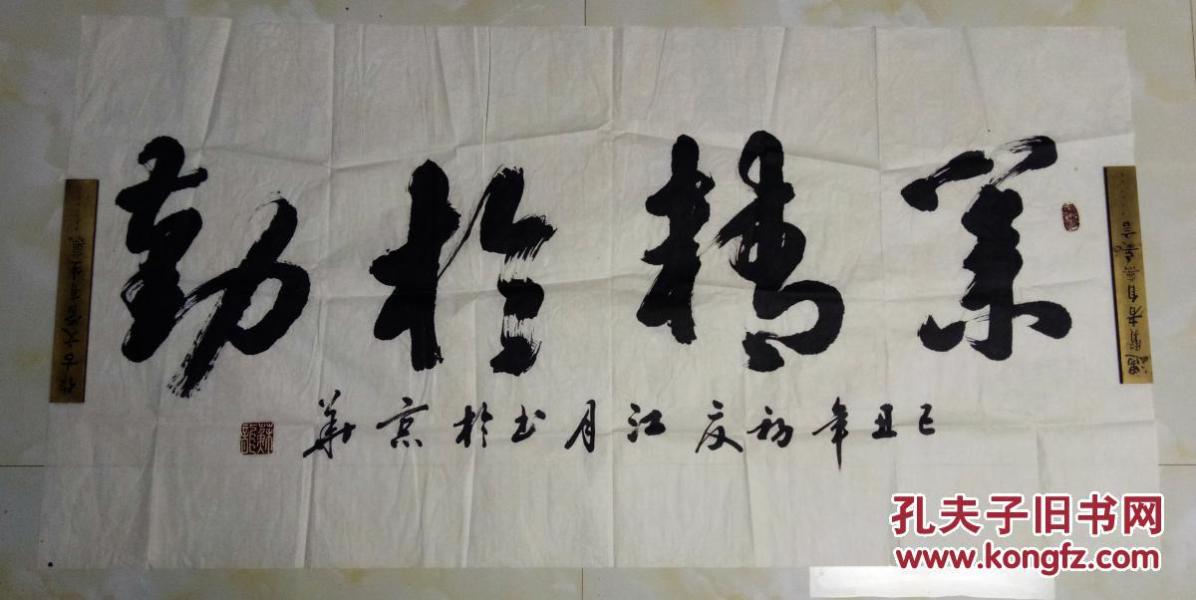 業精於勤
己丑年初夏江月书於京華
孔夫子旧书网
www.kongfz.com